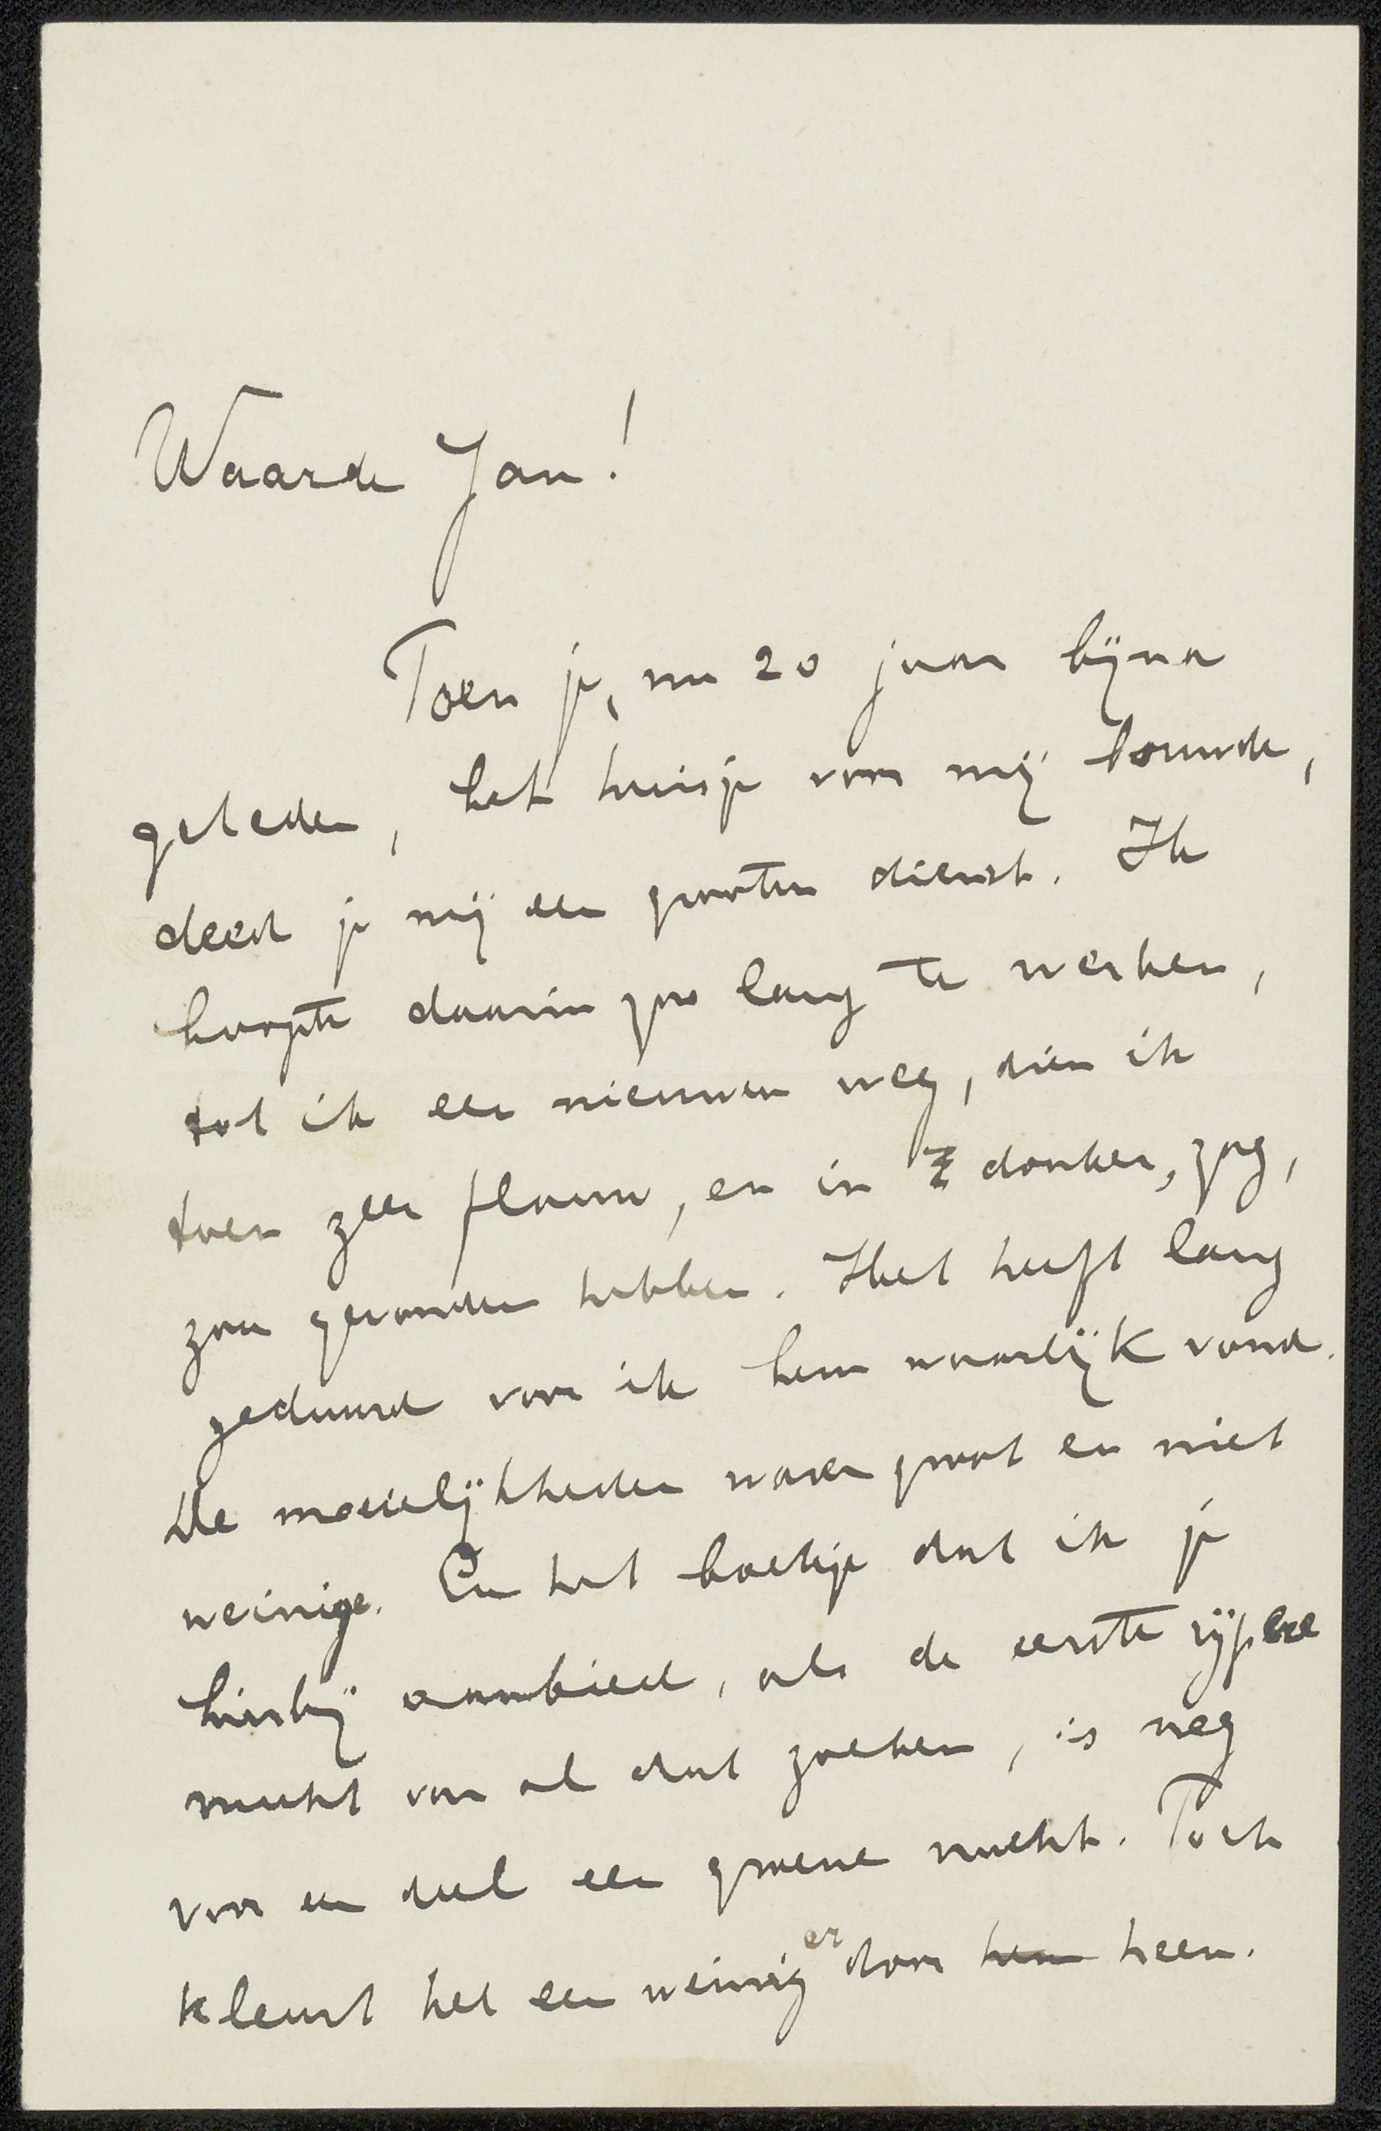 Waarde Jan!
Toen je, nu 20 jaar bijna
geleden, het huisje voor mij bouwde,
deed je mij een grooten dienst. Ik
hoopte daarin zoo lang te werken,
tot ik een nieuwen weg, dien ik
toen zeer flauw, en in 't donker, zag,
zou gevonden hebben. Het heeft lang
geduurd voor ik hem waarlijk vond.
De moeielijkheden waren groot en niet
weinige. En het boekje dat ik je
hierbij aanbied, als de eerste rijpere
vrucht van al dat zoeken, is nog
voor een deel een groene vrucht. Toch
kleurt het een weinig er door hem heen.